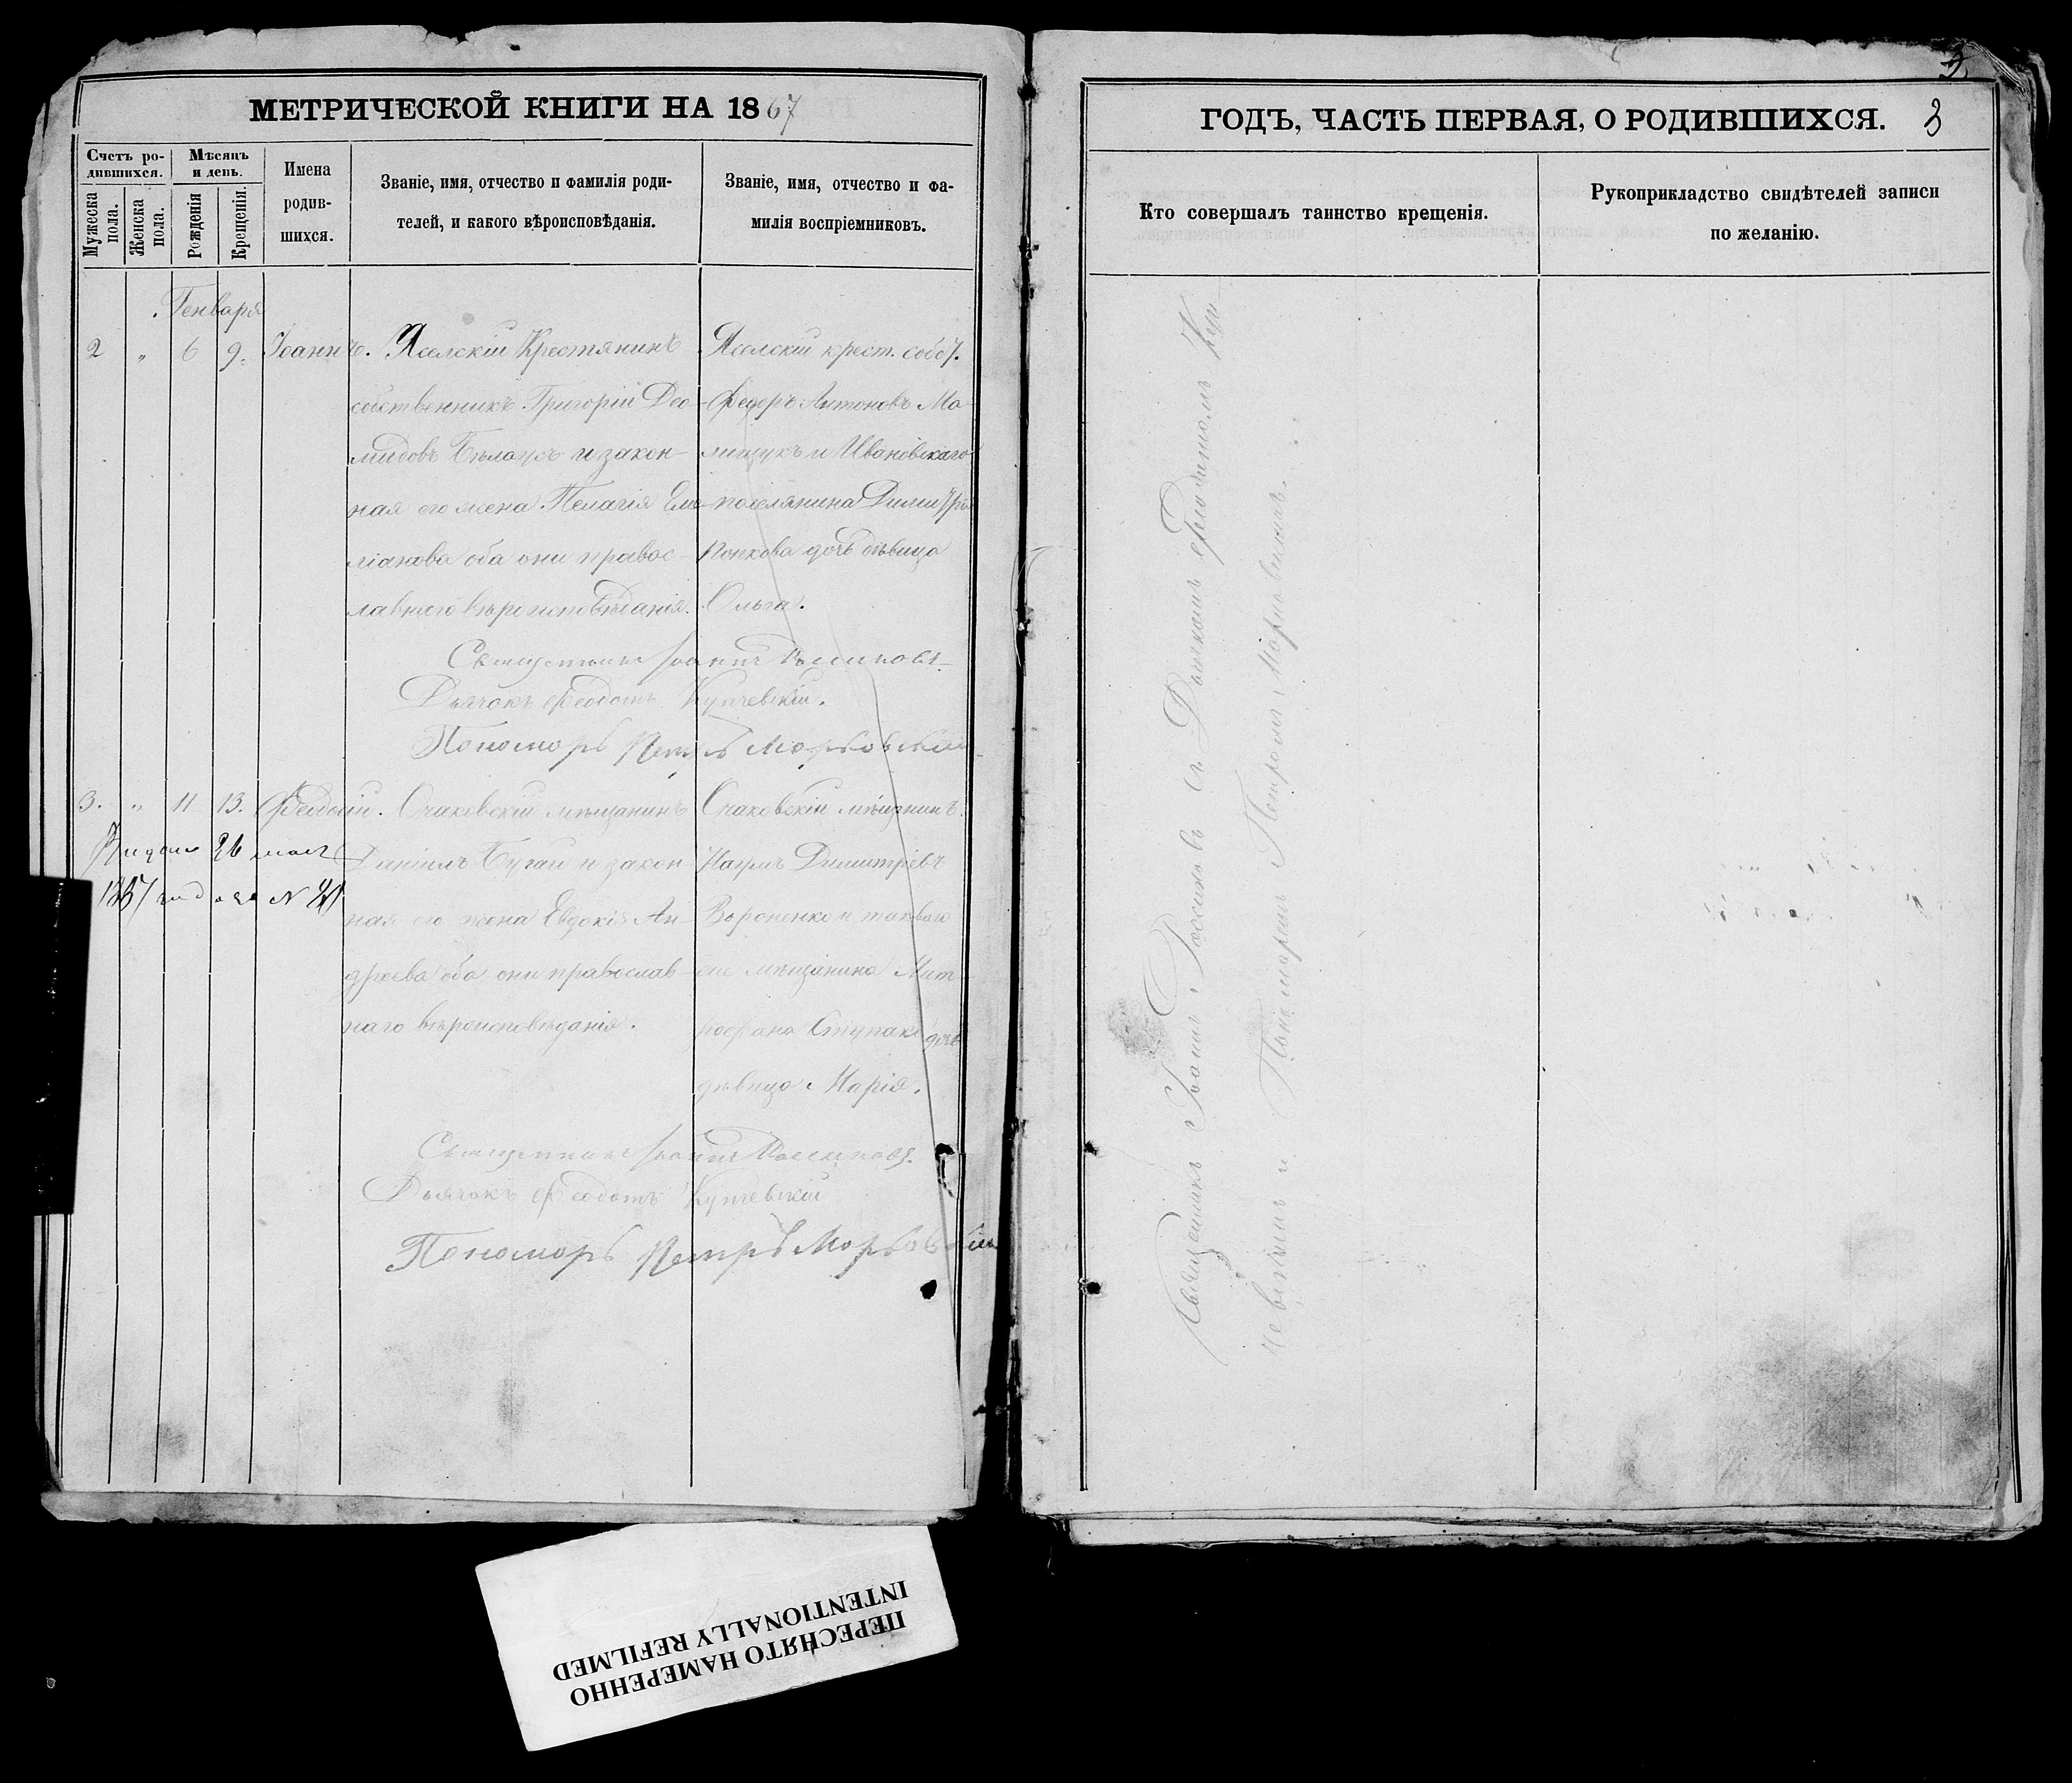 МЕТРИЧЕСКОЙ КНИГИ НА 1867
Счетъ родившихся.
Мужеска пола.
Женска пола.
Мѣсяцъ и день.
Рожденія
Крещенія.
Имена родившихся.
Званіе, имя, отчество и фамилія родителей, и какого вѣроисповѣданія.
Званіе, имя, отчество и фамилія воспріемниковъ.
Генваря
2 " 6 9. Іоаннъ.
Яселскій Крестянинъ
собственникъ Григорій Део-
мидовъ Бѣлоусъ и закон-
ная его жена Пелагія Еме
ліанова оба они правос-
лавнаго вѣроисповѣданія.
Яселскій крест. собст.
Федоръ Антоновъ
и Ивановскаго
поселянина Димитрія
Попкова дочь дѣвица
Ольга.
Священникъ Іоаннъ
Дьячокъ Феодотъ Купчевскій.
Пономарь Петръ
3. " 11 13. Феодосій.
Очаковскій мѣщанинъ
Даніилъ Бугай и закон
ная его жена Евдокія Ан-
дреева оба они православ-
наго вѣроисповѣданія.
Очаковскій мѣщанинъ
Наумъ Димитріевъ
Вороненко и таковаго
же мѣщанина Мит-
рофана Ступака дочь
дѣвица Марія.
26
1887 года за №
Священникъ Іоаннъ
Дьячокъ Феодотъ Купчевскій
Пономарь Петръ
ГОДЪ, ЧАСТЬ ПЕРВАЯ, О РОДИВШИХСЯ. 3
Кто совершалъ таинство крещенія.
Рукоприкладство свидѣтелей записи по желанію.
Священникъ Іоаннъ съ Дьячкомъ Феодотомъ Куп-
чевскимъ и Пономаремъ Петромъ
ПЕРЕСНЯТО НАМЕРЕННО
INTENTIONALLY REFILMED